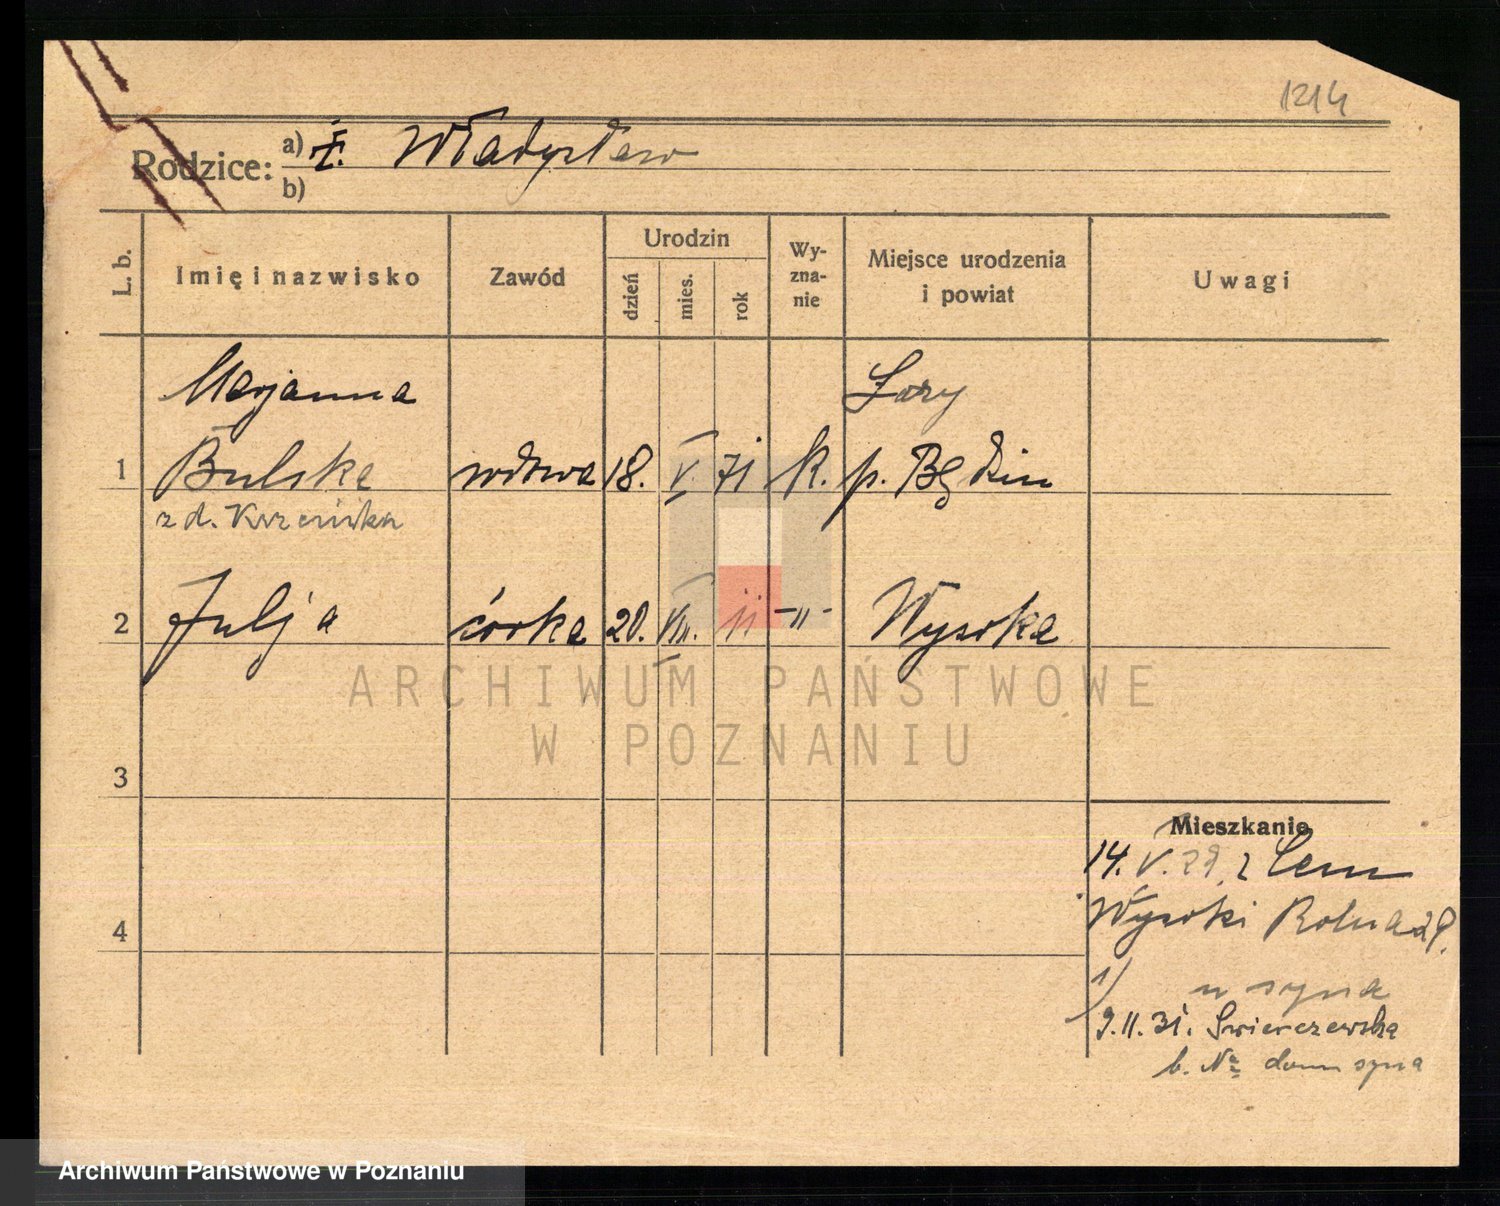 1214
Rodzice: a) Ż. Władysław
b)
L. b. Imię i nazwisko Zawód Urodzin dzień mies. rok Wy-zna-nie Miejsce urodzenia i powiat Uwagi
Marjanna Żory
1 Bulska wdowa 18. V. 71 k. p. Będzin
z d. Krzemińska
2 Julja córka 20. VIII. 11 -"- Wysoka
3
Mieszkanie
14. V. 29. z Lenn
4 Wysoki Rolna 29.
1) u syna
9.II.31. Świerczewska
b. No dom syna
ARCHIWUM PAŃSTWOWE
W POZNANIU
Archiwum Państwowe w Poznaniu